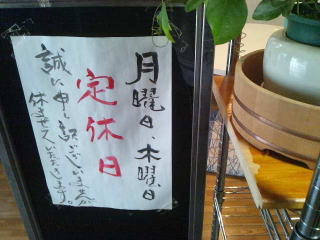 月曜日、木曜日
定休日
誠に申し訳ございませんが
休ませていただきます。